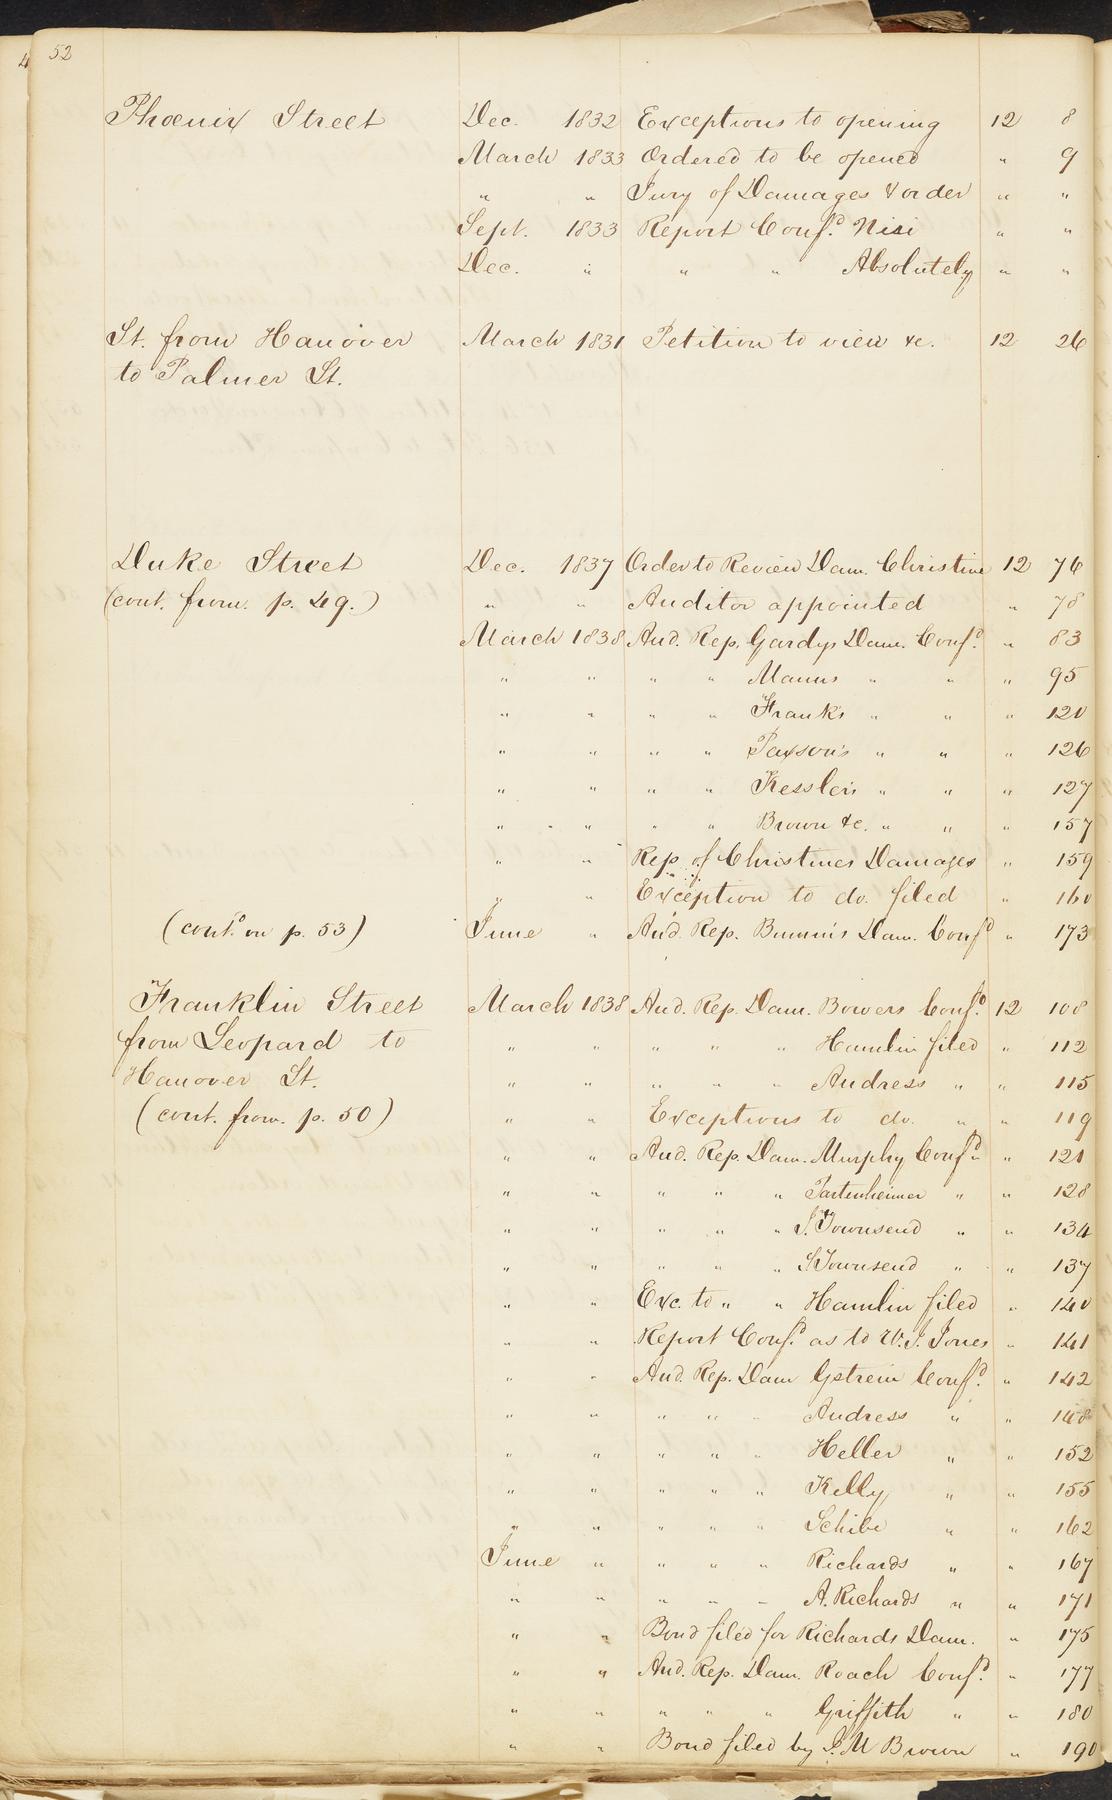 52
Phoenix Street Dec. 1832 Exceptions to opening 12 8
March 1833 Ordered to be opened " 9
" " Jury of Damages & order " "
Sept. 1833 Report Conf.d Nisi " "
Dec. " " " Absolutely " "
St. from Hanover March 1831 Petition to view &c. 12 26
to Palmer St.
Duke Street Dec. 1837 Order to Review Dam. Christine 12 76
(cont. from. p. 49.) " " Auditor appointed " 78
March 1838 Aud. Rep. Gardys Dam. Conf.d " 83
" " " " Manns " " " 95
" " " " Frank's " " " 120
" " " " Paxson's " " " 126
" " " " Kessler's " " " 127
" " " " Brown &c. " " " 157
" " Rep. of Christines Damages " 159
" " Exception to do. filed " 160
(cont.d on p. 53) June " Aud. Rep. Bumm's Dam. Conf.d " 173
Franklin Street March 1838 Aud. Rep. Dam. Bowers Conf.d 12 108
from Leopard to " " " " " Hamlin filed " 112
Hanover St. " " " " " Andress " " 115
(cont. from. p. 50) " " Exceptions to do. " " 119
" " Aud. Rep. Dam. Murphy Conf.d " 121
" " " " " Tartenheimer " " 128
" " " " " J. Townsend " " 134
" " " " " S Townsend " " 137
" " Exc. to " " Hamlin filed " 140
" " Report Conf.d as to W. J. Jones " 141
" " Aud. Rep. Dam Gstrein Conf.d " 142
" " " " " Andress " " 148
" " " " " Heller " " 152
" " " " " Kelly " " 155
" " " " " Schibe " " 162
June " " " " Richards " " 167
" " " " " A. Richards " " 171
" " Bond filed for Richards Dam. " 175
" " Aud. Rep. Dam. Roach Conf.d " 177
" " " " " Griffith " " 180
" " Bond filed by J. M Brown " 190